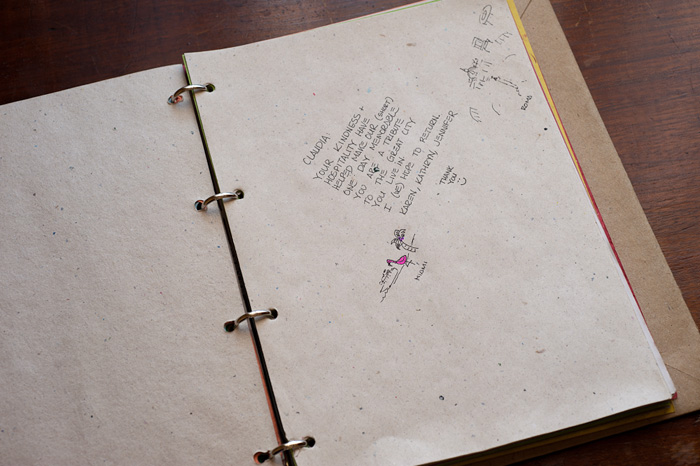 CLAUDIA
YOUR KINDNESS +
HOSPITALITY HAVE
HELPED MAKE OUR (SHORT)
ONE DAY MEMORABLE
YOU ARE A TRIBUTE
TO THE GREAT CITY
YOU LIVE IN.
I (WE) HOPE TO RETURN
KAREN, KATHRYN, JENNIFER
THANK
YOU
MIAMI